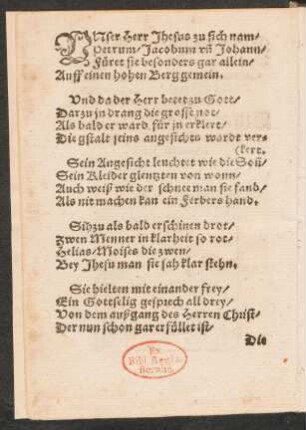 UNser Herr Jhesus zu sich nam/
Petrum/Jacobum vn̄ Johann/
Füret sie besonders gar allein/
Auff einen hohen Berg gemein.
Und da der Herr betet zu Gott/
Darzu jn drang die grosse not/
Als bald er ward für jn erklert/
Die gstalt seins angesichts wardt ver-
(kert.
Sein Angesicht leuchtet wie die Soñ/
Sein Kleider glentzten von wonn/
Auch weiß wie der schnee man sie fand/
Als nit machen kan ein Ferbers hand.
Sihzu als bald erschinen drot/
Zwen Menner in klarheit so rot/
Helias/Moises die zwen/
Bey Jhesu man sie sah klar stehn.
Sie hielten mit einander frey/
Ein Gottselig gesprech all drey/
Von dem außgang des Herren Christ/
Der nun schon gar erfüllet ist/
Die
Ex
Bibl. Regia
Berolin.